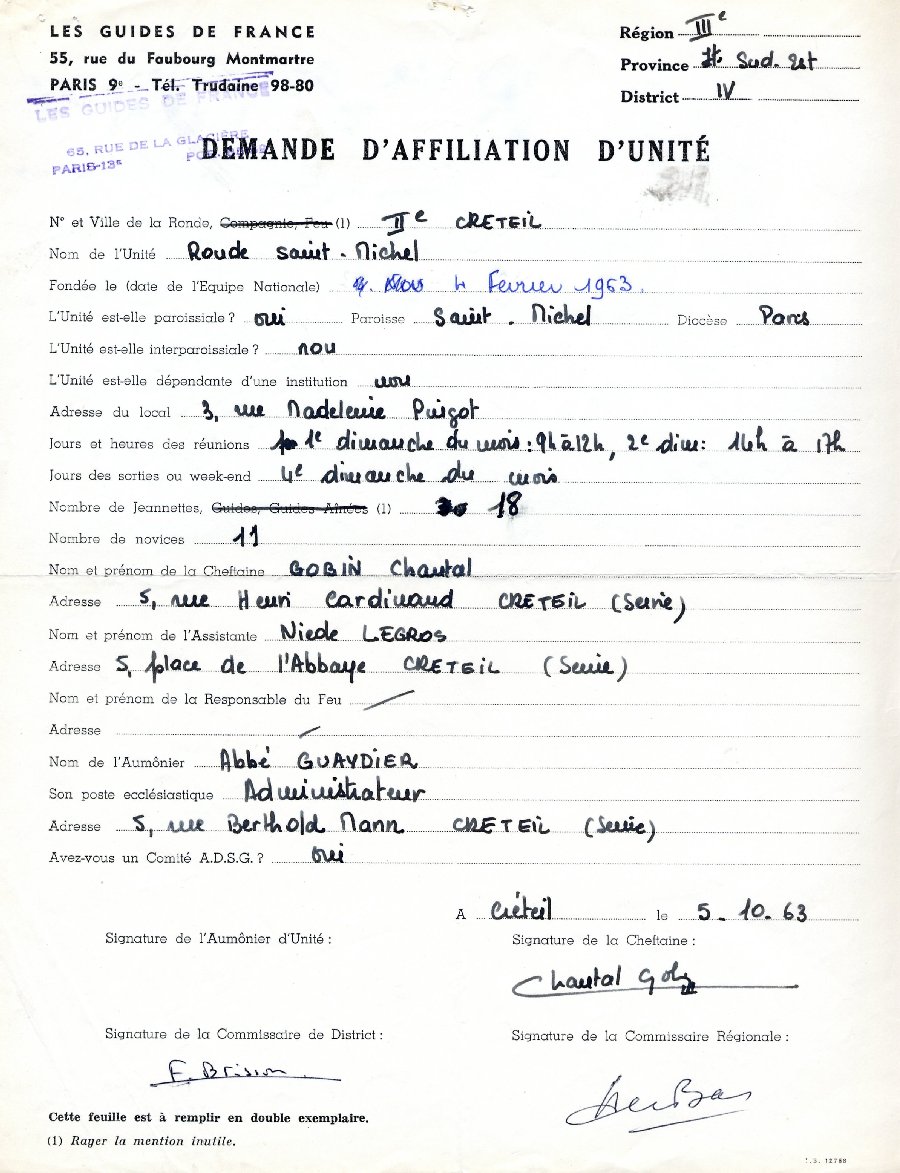 LES GUIDES DE FRANCE
55, rue du Faubourg Montmartre
PARIS 9e - Tél. Trudaine 98-80
LES GUIDES DE FRANCE
65, RUE DE LA GLACIÈRE
PARIS-13e
Région IIIe
Province Sud. Est
District IV
DEMANDE D'AFFILIATION D'UNITÉ
N° et Ville de la Ronde, Compagnie, Feu (1) IIe CRETEIL
Nom de l'Unité Ronde Saint-Michel
Fondée le (date de l'Equipe Nationale) 4 Fevrier 1963.
L'Unité est-elle paroissiale ? oui Paroisse Saint. Michel Diocèse Paris
L'Unité est-elle interparoissiale ? non
L'Unité est-elle dépendante d'une institution non
Adresse du local 3, rue Madeleine
Jours et heures des réunions 1e dimanche du mois : 9h à 12h, 2e dim : 14h à 17h
Jours des sorties ou week-end 4e dimanche du mois
Nombre de Jeannettes, Guides, Guides Aînées (1) 18
Nombre de novices 11
Nom et prénom de la Cheftaine GOBIN Chantal
Adresse 5, rue Henri Cardinaud CRETEIL (Seine)
Nom et prénom de l'Assistante LEGROS
Adresse 5, place de l'Abbaye CRETEIL (Seine)
Nom et prénom de la Responsable du Feu
Adresse
Nom de l'Aumônier Abbé GUAYDIER
Son poste ecclésiastique Administrateur
Adresse 5, rue Berthold Mann CRETEIL (Seine)
Avez-vous un Comité A.D.S.G. ? oui
A Créteil le 5.10.63
Signature de l'Aumônier d'Unité :
Signature de la Cheftaine :
Chantal Gobin
Signature de la Commissaire de District :
Signature de la Commissaire Régionale :
F. Brisson
Cette feuille est à remplir en double exemplaire.
(1) Rayer la mention inutile.